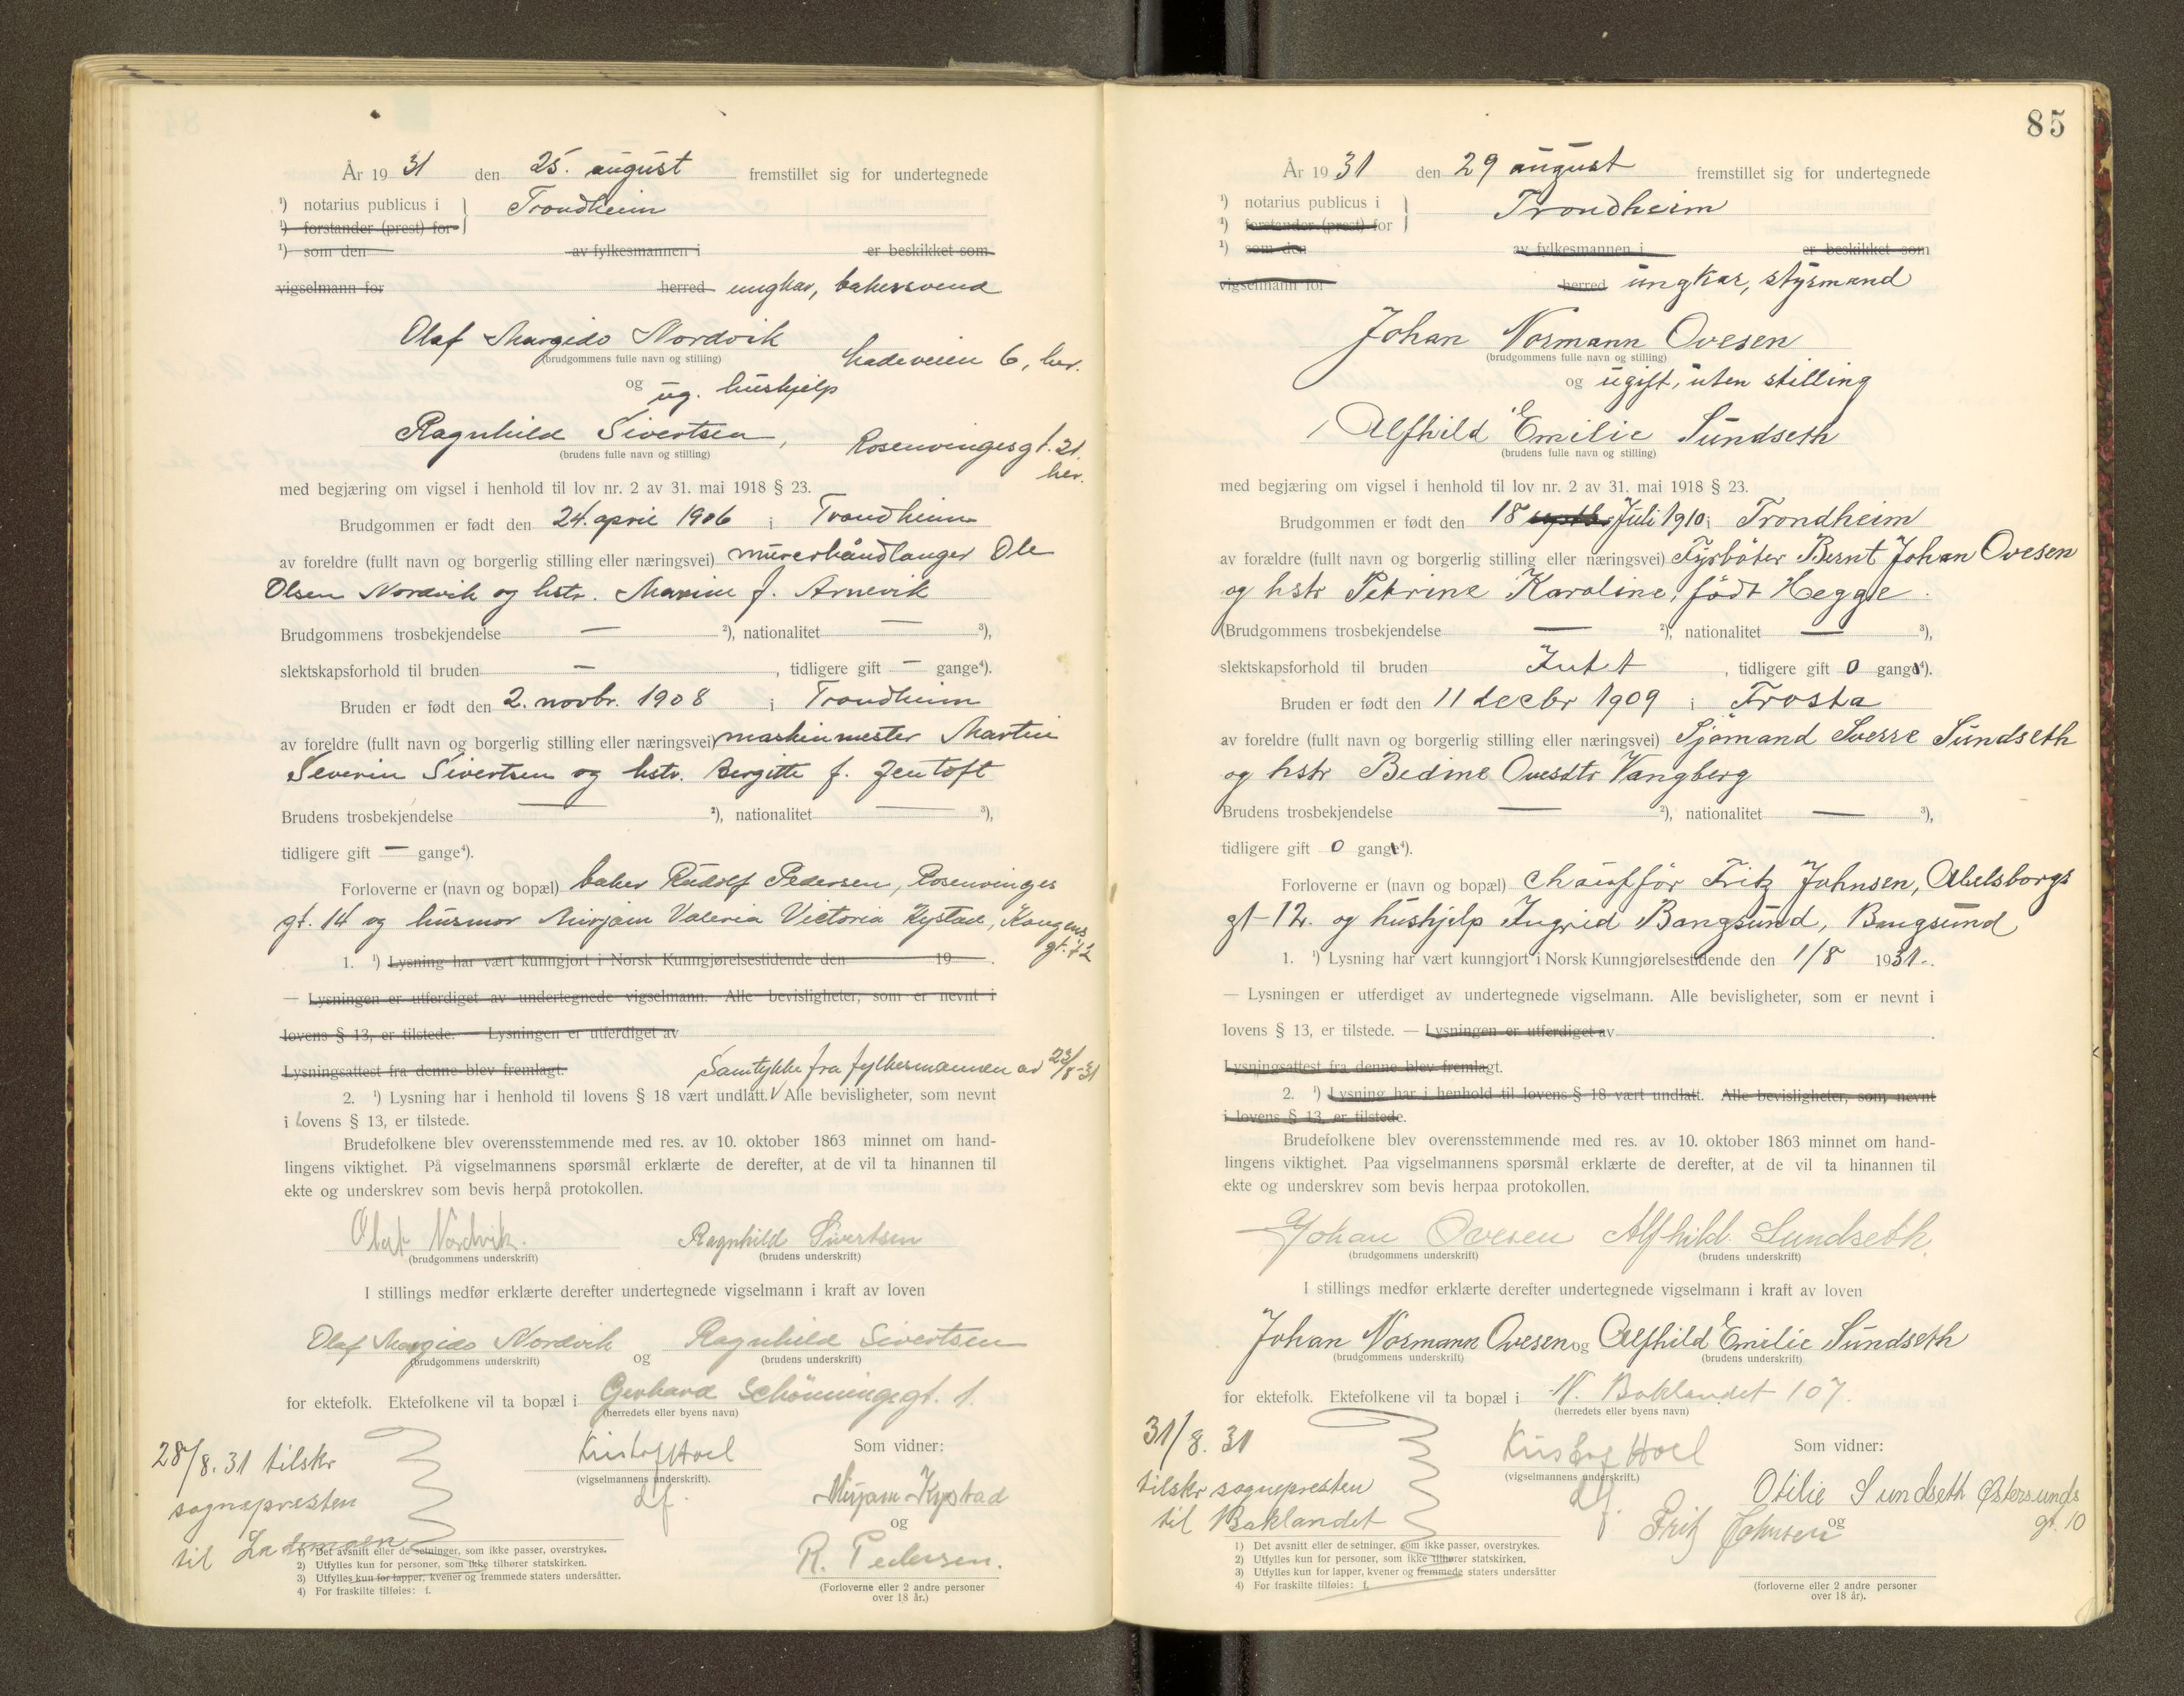 År 1931 den 25. august fremstillet sig for undertegnede
¹) notarius publicus i } Trondheim
¹) forstander (prest) for
¹) som den av fylkesmannen i er beskikket som
vigselmann for herred ungkar, bakersvend
Olaf Margido Nordvik
(brudgommens fulle navn og stilling) Ladeveien 6, her.
og ug. hushjelp
Ragnhild Sivertsen, Rosenvingesgt. 21.
(brudens fulle navn og stilling) her.
med begjæring om vigsel i henhold til lov nr. 2 av 31. mai 1918 § 23.
Brudgommen er født den 24. april 1906 i Trondheim
av foreldre (fullt navn og borgerlig stilling eller næringsvei) murerhåndlanger Ole
Olsen Nordvik og hstr. Maxine f. Arnevik
Brudgommens trosbekjendelse — ²), nationalitet — ³),
slektskapsforhold til bruden — , tidligere gift — gange⁴).
Bruden er født den 2. novbr. 1908 i Trondheim
av foreldre (fullt navn og borgerlig stilling eller næringsvei) maskinmester Martin
Severin Sivertsen og hstr. Bergitte f. Zentoft
Brudens trosbekjendelse — ²), nationalitet — ³),
tidligere gift — gange⁴).
Forloverne er (navn og bopæl) baker Rudolf Pedersen, Rosenvinges
gt. 14 og husmor Mirjam Valeria Victoria Kystad, Kongens
gt. 72
1. ¹) Lysning har vært kunngjort i Norsk Kunngjørelsestidende den 19 .
— Lysningen er utferdiget av undertegnede vigselmann. Alle bevisligheter, som er nevnt i
lovens § 13, er tilstede. — Lysningen er utferdiget av
Lysningsattest fra denne blev fremlagt. Samtykke fra fylkesmannen av 23/8-31
2. ¹) Lysning har i henhold til lovens § 18 vært undlatt. √ Alle bevisligheter, som nevnt
i lovens § 13, er tilstede.
Brudefolkene blev overensstemmende med res. av 10. oktober 1863 minnet om hand-
lingens viktighet. På vigselmannens spørsmål erklærte de derefter, at de vil ta hinannen til
ekte og underskrev som bevis herpå protokollen.
Olaf Nordvik. Ragnhild Sivertsen
(brudgommens underskrift) (brudens underskrift)
I stillings medfør erklærte derefter undertegnede vigselmann i kraft av loven
Olaf Margido Nordvik og Ragnhild Sivertsen
(brudgommens underskrift) (brudens underskrift)
for ektefolk. Ektefolkene vil ta bopæl i Gerhard Schönningsgt. 1.
(herredets eller byens navn)
28/8.31 tilskr Kristof Hoel Som vidner:
(vigselmannens underskrift).
sognepresten df. Mirjam Kystad
og
til Lademoen R. Pedersen.
1) Det avsnitt eller de setninger, som ikke passer, overstrykes.
2) Utfylles kun for personer, som ikke tilhører statskirken.
3) Utfylles kun for lapper, kvener og fremmede staters undersåtter.
4) For fraskilte tilføies: f.
(Forloverne eller 2 andre personer
over 18 år.)
85
År 1931 den 29 august fremstillet sig for undertegnede
¹) notarius publicus i } Trondheim
¹) forstander (prest) for
¹) som den av fylkesmannen i er beskikket som
vigselmann for herred ungkar, styrmand
Johan Normann Ovesen
(brudgommens fulle navn og stilling)
og ugift, uten stilling
Alfhild Emilie Sundseth
(brudens fulle navn og stilling)
med begjæring om vigsel i henhold til lov nr. 2 av 31. mai 1918 § 23.
Brudgommen er født den 18 septbr Juli 1910 i Trondheim
av forældre (fullt navn og borgerlig stilling eller næringsvei) Fyrböter Bernt Johan Ovesen
og hstr Petrine Karoline, født Hegge.
Brudgommens trosbekjendelse — ²), nationalitet — ³),
slektskapsforhold til bruden Intet , tidligere gift 0 gange⁴).
Bruden er født den 11 decbr 1909 i Frosta
av foreldre (fullt navn og borgerlig stilling eller næringsvei) Sjömand Sverre Sundseth
og hstr Bedine Ovesdtr Vangberg
Brudens trosbekjendelse — ²), nationalitet — ³),
tidligere gift 0 gange⁴).
Forloverne er (navn og bopæl) chauffør Fritz Johnsen, Abelsborgs
gt 12. og hushjelp Ingrid Bangsund, Bangsund
1. ¹) Lysning har vært kunngjort i Norsk Kunngjørelsestidende den 1/8 1931.
— Lysningen er utferdiget av undertegnede vigselmann. Alle bevisligheter, som er nevnt i
lovens § 13, er tilstede. — Lysningen er utferdiget av .
Lysningsattest fra denne blev fremlagt.
2. ¹) Lysning har i henhold til lovens § 18 vært undlatt. Alle bevisligheter, som nevnt
i lovens § 13, er tilstede.
Brudefolkene blev overensstemmende med res. av 10. oktober 1863 minnet om hand-
lingens viktighet. Paa vigselmannens spørsmål erklærte de derefter, at de vil ta hinannen til
ekte og underskrev som bevis herpaa protokollen.
Johan Ovesen Alfhild Sundseth.
(brudgommens underskrift) (brudens underskrift)
I stillings medfør erklærte derefter undertegnede vigselmann i kraft av loven
Johan Normann Ovesen og Alfhild Emilie Sundseth
(brudgommens underskrift) (brudens underskrift)
for ektefolk. Ektefolkene vil ta bopæl i N. Baklandet 107.
(herredets eller byens navn)
31/8. 31 Kristof Hoel Som vidner:
(vigselmannens underskrift.)
tilskr sognepresten df. Otilie Sundseth Østersunds
gt. 10
og
til Baklandet Fritz Johnsen
1) Det avsnitt eller de setninger, som ikke passer, overstrykes.
2) Utfylles kun for personer, som ikke tilhører statskirken.
3) Utfylles kun for lapper, kvener og fremmede staters undersåtter
4) For fraskilte tilføies: f.
(forloverne eller 2 andre personer
over 18 år).